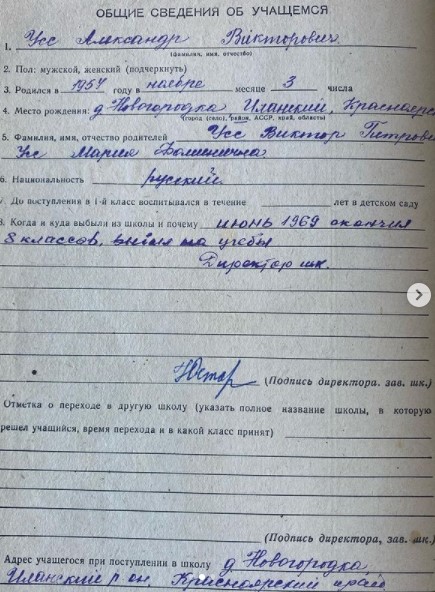 ОБЩИЕ СВЕДЕНИЯ ОБ УЧАЩЕМСЯ
1. Усс Александр Викторович
(фамилия, имя, отчество)
2. Пол: мужской, женский (подчеркнуть)
3. Родился в 1954 году в ноябре месяце 3 числа
4. Место рождения: д Новогородка Иланский, Красноярск
(город (село), район, АССР, край, область)
5. Фамилия, имя, отчество родителей Усс Виктор Петрови
Усс Мария
6. Национальность русский
7. До поступления в 1-й класс воспитывался в течение лет в детском саду
8. Когда и куда выбыли из школы и почему июнь 1969 окончил
8 классов, выбыл на учебу
Директор шк.
(Подпись директора. зав. шк.)
Отметка о переходе в другую школу (указать полное название школы, в которую
решел учащийся, время перехода и в какой класс принят)
(Подпись директора, зав. шк.)
Адрес учащегося при поступлении в школу д Новогородка
Иланский р он, Красноярский край